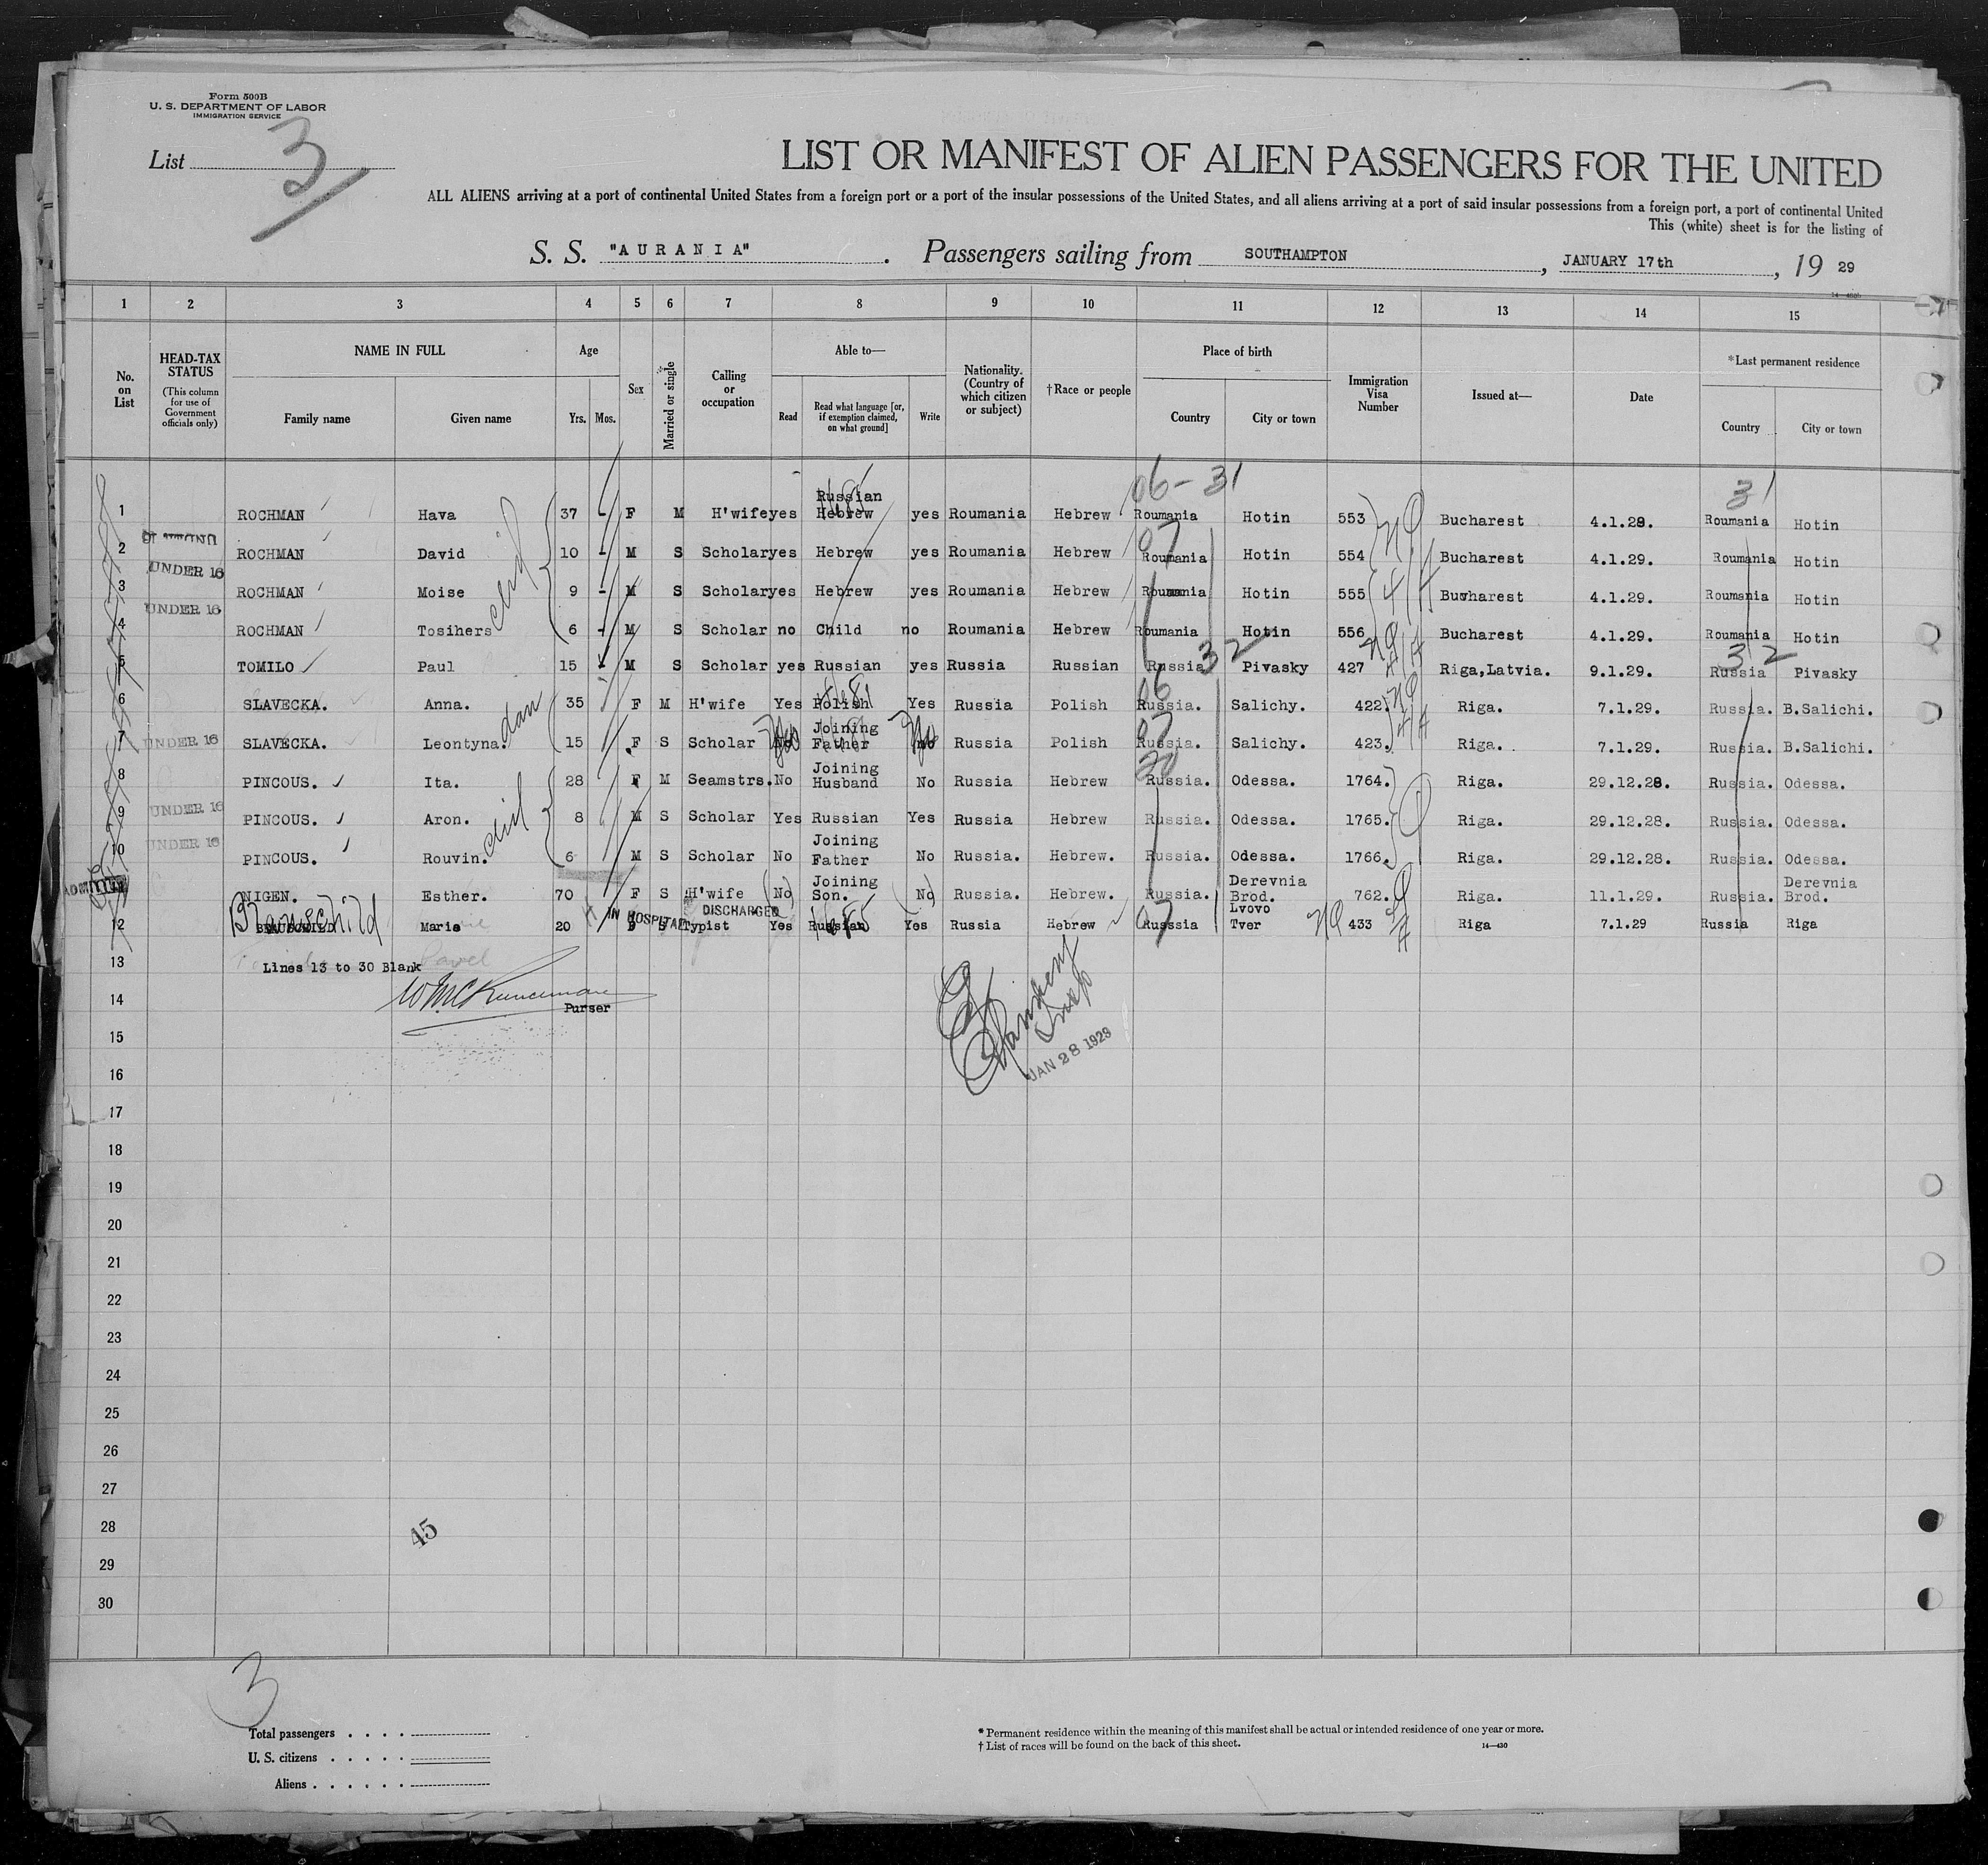 Form 500B
U. S. DEPARTMENT OF LABOR
IMMIGRATION SERVICE
List 3
LIST OR MANIFEST OF ALIEN PASSENGERS FOR THE UNITED
ALL ALIENS arriving at a port of continental United States from a foreign port or a port of the insular possessions of the United States, and all aliens arriving at a port of said insular possessions from a foreign port, a port of continental United
This (white) sheet is for the listing of
S. S. "AURANIA". Passengers sailing from SOUTHAMPTON, JANUARY 17th, 19 29
1 2 3 4 5 6 7 8 9 10 11 12 13 14 15
No. on List
HEAD-TAX STATUS
(This column for use of Government officials only)
NAME IN FULL
Family name Given name
Age
Yrs. Mos.
Sex
Married or single
Calling or occupation
Able to—
Read Read what language [or, if exemption claimed, on what ground] Write
Nationality. (Country of which citizen or subject)
†Race or people
Place of birth
Country City or town
Immigration Visa Number
Issued at—
Date
*Last permanent residence
Country City or town
06-31 31
1 ROCHMAN Hava 37 - F M H'wife yes Russian Hebrew yes Roumania Hebrew Roumania Hotin 553 Bucharest 4.1.29. Roumania Hotin
2 ROCHMAN David 10 - M S Scholar yes Hebrew yes Roumania Hebrew Roumania Hotin 554 Bucharest 4.1.29. Roumania Hotin
UNDER 16
3 ROCHMAN Moise 9 - M S Scholar yes Hebrew yes Roumania Hebrew Roumania Hotin 555 Buwharest 4.1.29. Roumania Hotin
UNDER 16
4 ROCHMAN Tosihers 6 - M S Scholar no Child no Roumania Hebrew Roumania Hotin 556 Bucharest 4.1.29. Roumania Hotin
5 TOMILO Paul 15 - M S Scholar yes Russian yes Russia Russian Russia 32 Pivasky 427 Riga,Latvia. 9.1.29. Russia 32 Pivasky
6 SLAVECKA. Anna. 35 F M H'wife Yes Polish Yes Russia Polish Russia. Salichy. 422. Riga. 7.1.29. Russia. B.Salichi.
7 UNDER 16 SLAVECKA. Leontyna. 15 F S Scholar No Joining Father no Russia Polish Russia. Salichy. 423. Riga. 7.1.29. Russia. B.Salichi.
8 PINCOUS. Ita. 28 F M Seamstrs. No Joining Husband No Russia Hebrew Russia. Odessa. 1764. Riga. 29.12.28. Russia. Odessa.
9 UNDER 16 PINCOUS. Aron. 8 M S Scholar Yes Russian Yes Russia Hebrew Russia. Odessa. 1765. Riga. 29.12.28. Russia. Odessa.
10 UNDER 16 PINCOUS. Rouvin. 6 M S Scholar No Joining Father No Russia. Hebrew. Russia. Odessa. 1766. Riga. 29.12.28. Russia. Odessa.
NIGEN. Esther. 70 F S H'wife No Joining Son. No Russia. Hebrew. Russia. Derevnia Brod. 762. Riga. 11.1.29. Russia. Derevnia Brod.
IN HOSPITAL DISCHARGED
12 Blauschild Marie 20 S Typist Yes Russian Yes Russia Hebrew Russsia Lvovo Tver 433 Riga 7.1.29 Russia Riga
13 Lines 13 to 30 Blank
14 Purser
JAN 28 1929
15
16
17
18
19
20
21
22
23
24
25
26
27
28 45
29
30
3
Total passengers . . . .
U. S. citizens . . . . .
Aliens . . . . . .
* Permanent residence within the meaning of this manifest shall be actual or intended residence of one year or more.
† List of races will be found on the back of this sheet. 14—430